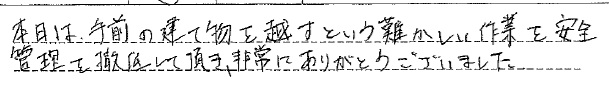 本日は、午前の建て物を越すという難かしい作業を安全
管理を徹底して頂き、非常にありがとうございました。